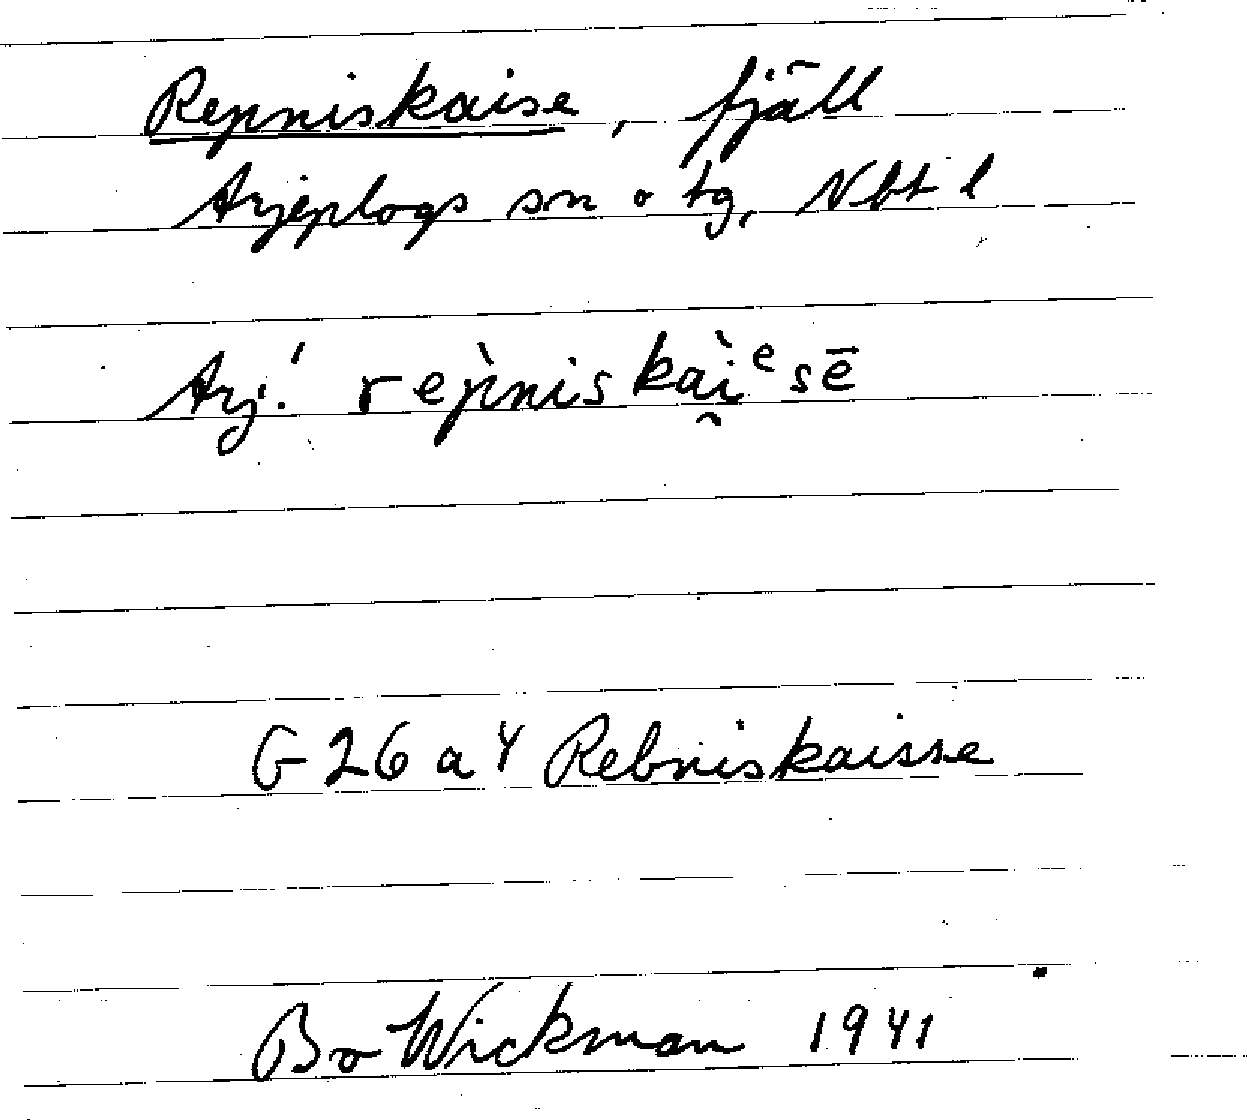 Repniskaise, fjäll
Arjeplogs sn o tg, Nbt l
Arj.' rep̀niskài̯ᵉsē
G 26 a 4 Rebniskaisse
Bo Wickman 1941